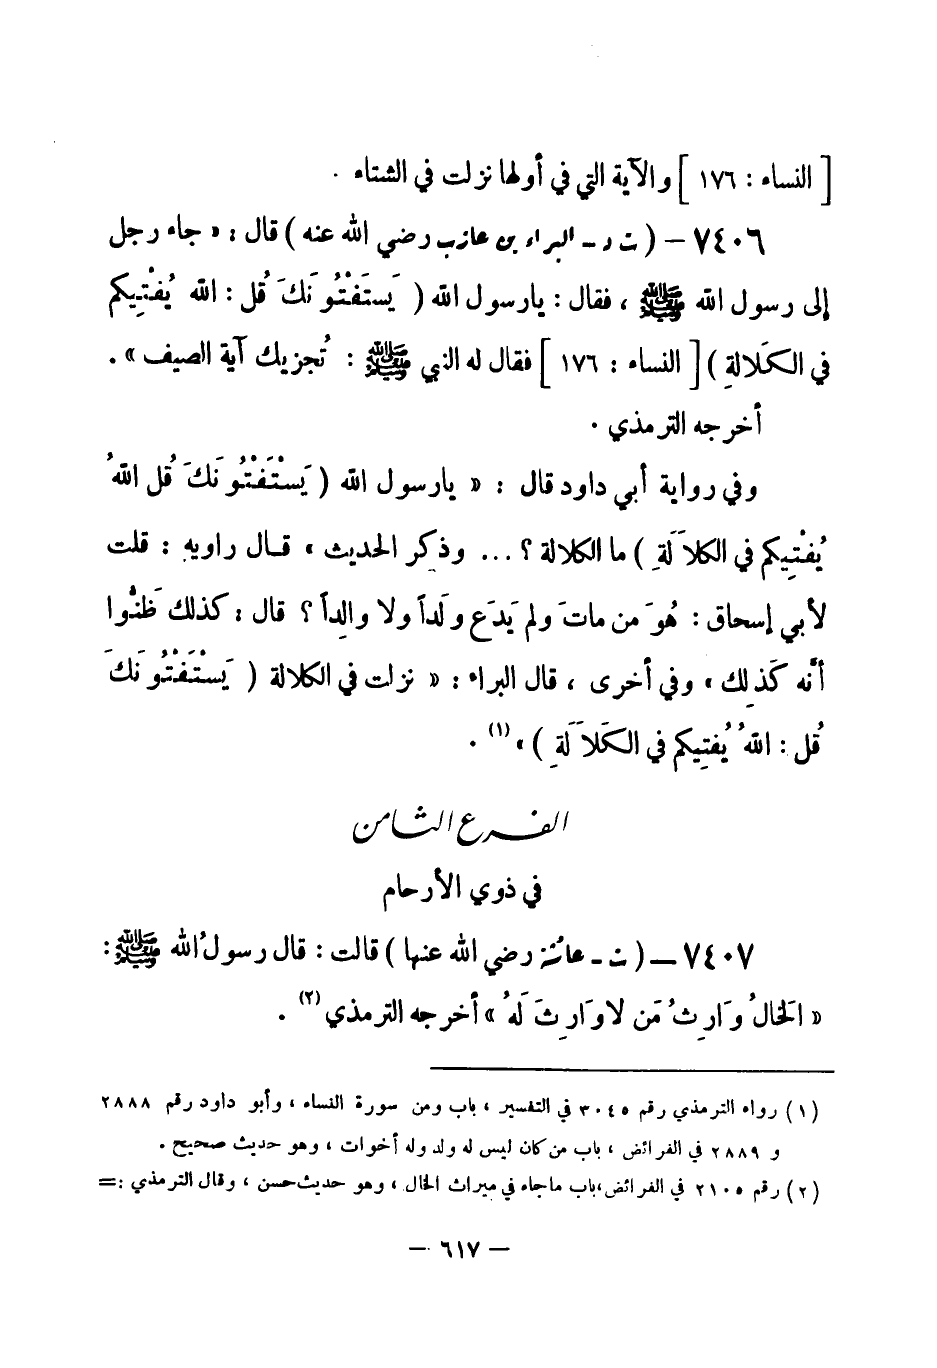 [ النساء : ١٧٦ ] والآية التي في أولها نزلت في الشتاء .
٧٤٠٦ – ( ت د - البراء بن عازب رضي الله عنه ) قال : « جاء رجل
إلى رسول الله ﷺ ، فقال : يارسول الله ( يَستَفْتُونَكَ قُل : الله يُفْتِيكم
في الكَلالةِ ) [ النساء : ١٧٦ ] فقال له النبي ﷺ : تُجزيك آية الصيف » .
أخرجه الترمذي .
وفي رواية أبي داود قال : « يارسول الله ( يَسْتَفْتُونَكَ قُل اللهُ
يُفْتِيكم في الكلاَلَةِ ) ما الكلالة ؟ ... وذكر الحديث » قـال راويه : قلت
لأبي إسحاق : هُوَ مَن ماتَ ولم يَدَع ولَداً ولا والِداً ؟ قال : كذلك ظَنُّوا
أنَّه كَذلِك » وفي أخرى ، قال البراء : « نزلت في الكلالة ( يَسْتَفْتُونَكَ
قُل : اللهُ يُفتِيكم في الكَلاَلَةِ ) » (١) .
الفـرع الثامن
في ذوي الأرحام
٧٤٠٧ – ( ت - عائشة رضي الله عنها ) قالت : قال رسولُ الله ﷺ :
« الخالُ وَارِثُ مَن لا وَارِثَ لَهُ » أخرجه الترمذي (٢) .
(١) رواه الترمذي رقم ٣٠٤٥ في التفسير ، باب ومن سورة النساء ، وأبو داود رقم ٢٨٨٨
و ٢٨٨٩ في الفرائض ، باب من كان ليس له ولد وله أخوات ، وهو حديث صحيح .
(٢) رقم ٢١٠٥ في الفرائض ، باب ماجاء في ميراث الخال ، وهو حديث حسن ، وقال الترمذي : =
– ٦١٧ –